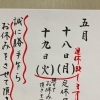 五月
連休致します
十八日(月)定休
十九日(火)
誠に勝手ながら
お休みさせて頂き